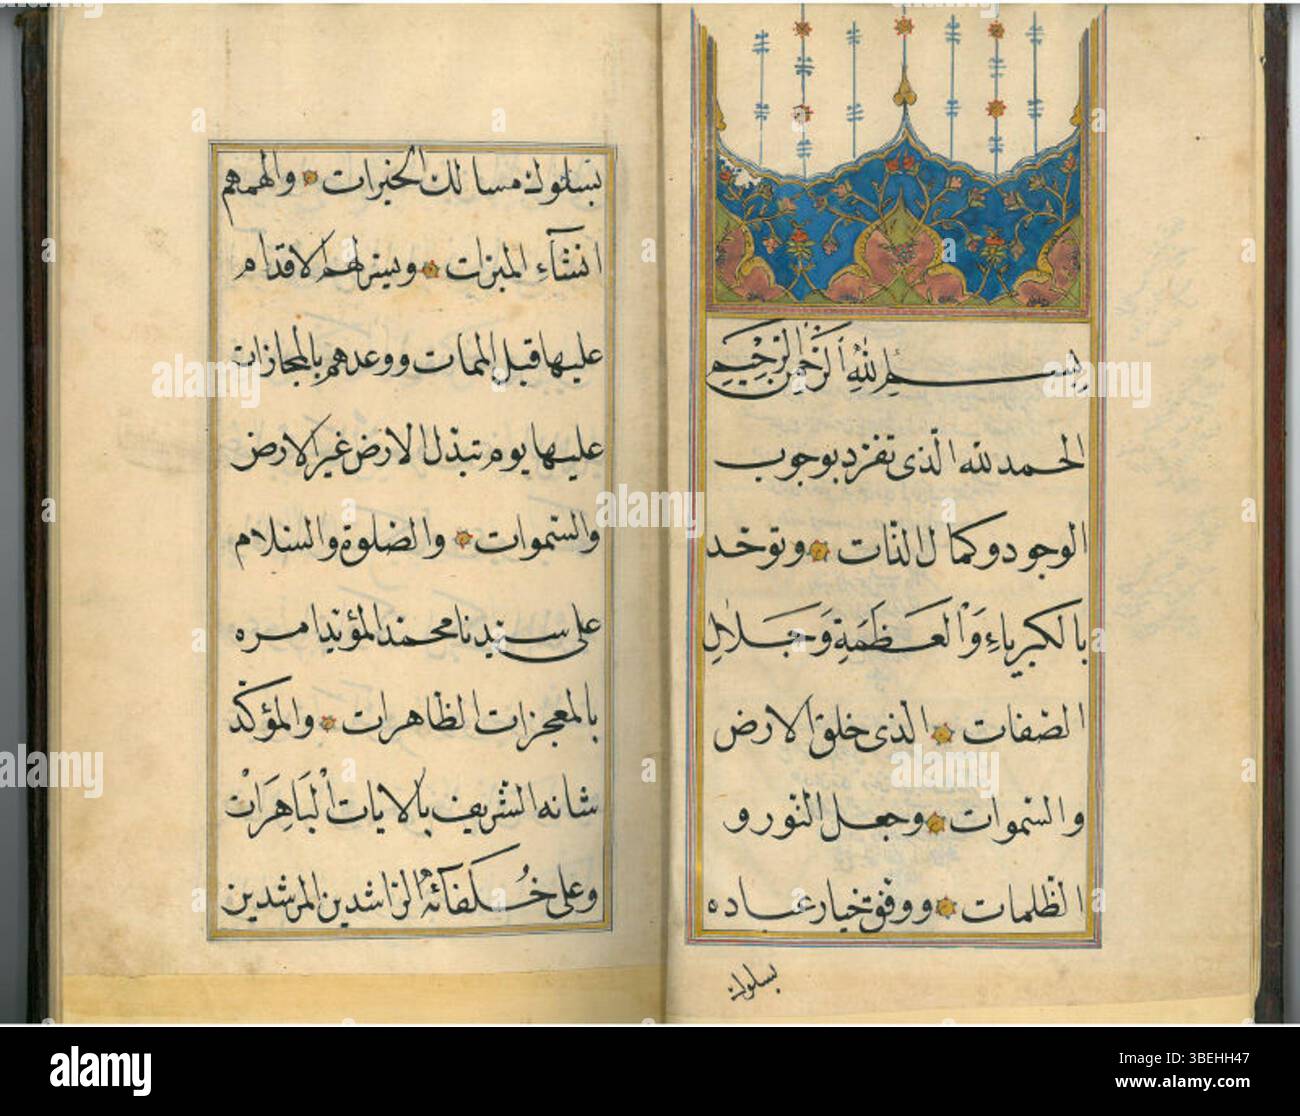 بِسْمِ اللّٰهِ الرَّحْمٰنِ الرَّحِيْمِ
الحمد لله الّذى تفرّد بوجوب
الوجود وكمال الذّات وتوحّد
بالكبرياءِ وَالْعَظَمَةِ وَجَلَالِ
الصّفات الّذى خلق الارض
والسّموات وجعل النّور و
الظّلمات ووفّق خيار عباده
بسلوك
بسلوك مسالك الخيرات والهمهم
انشآء المبرّات ويسّر لهم الاقدام
عليها قبل الممات ووعدهم بالمجازات
عليها يوم تبدّل الارض غير الارض
والسّموات والصّلوة والسّلام
على سيّدنا محمّد المؤيّد امره
بالمعجزات الظّاهرات والمؤكّد
شانه الشّريف بالايات الْبَاهِرَات
وعلى خُلفآئه الرّاشدين المرشدين
alamy
Image ID: 3BEHH47
www.alamy.com